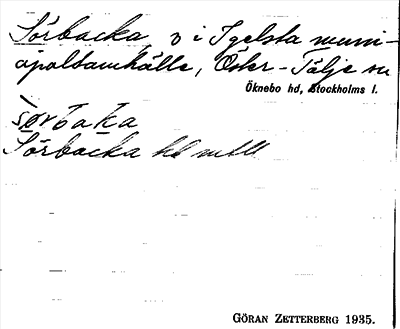 Sörbacka, ö i Igelsta muni-
cipalsamhälle, Öster-Tälje sn
Öknebo hd, Stockholms l.
Sörbacka
GÖRAN ZETTERBERG 1935.